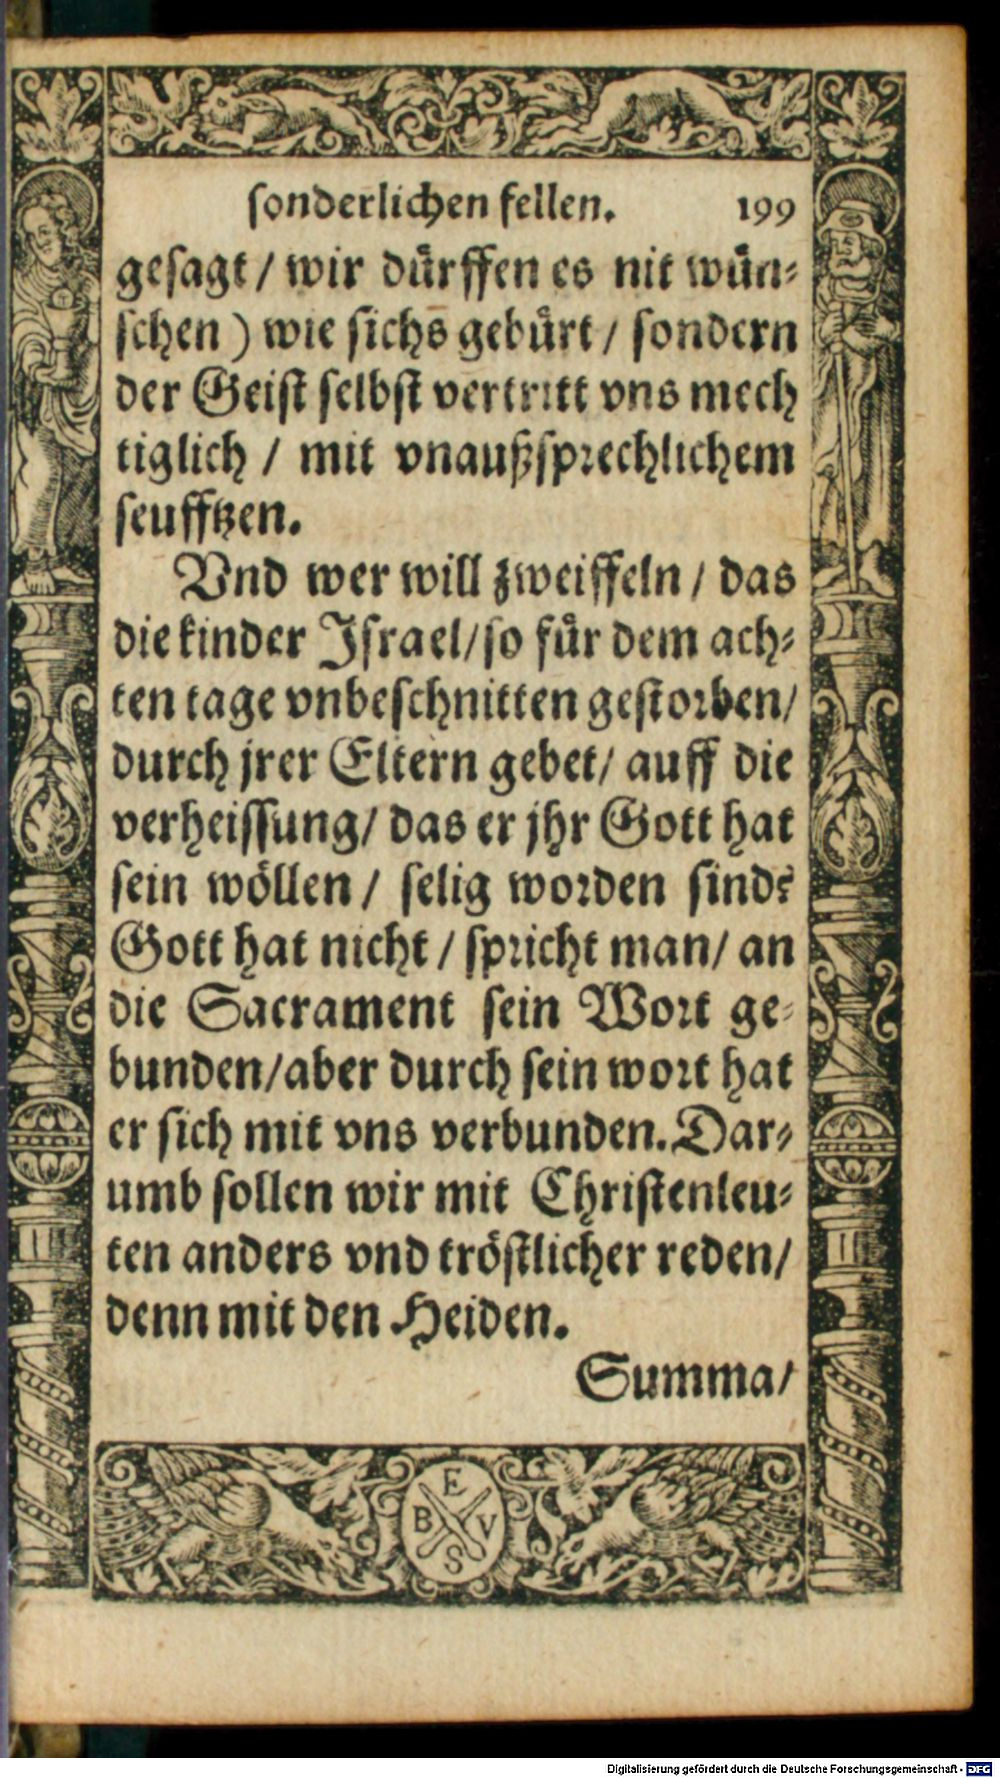 sonderlichen fellen. 199
gesagt / wir dürffen es nit wün⸗
schen ) wie sichs gebürt / sondern
der Geist selbst vertritt vns mech
tiglich / mit vnaußsprechlichem
seufftzen.
Vnd wer will zweiffeln / das
die kinder Israel/ so für dem ach⸗
ten tage vnbeschnitten gestorben/
durch jrer Eltern gebet/ auff die
verheissung/ das er jhr Gott hat
sein wöllen / selig worden sind?
Gott hat nicht / spricht man/ an
die Sacrament sein Wort ge⸗
bunden/aber durch sein wort hat
er sich mit vns verbunden. Dar⸗
umb sollen wir mit Christenleu⸗
ten anders vnd tröstlicher reden/
denn mit den Heiden.
Summa/
E
B V
S
Digitalisierung gefördert durch die Deutsche Forschungsgemeinschaft - DFG